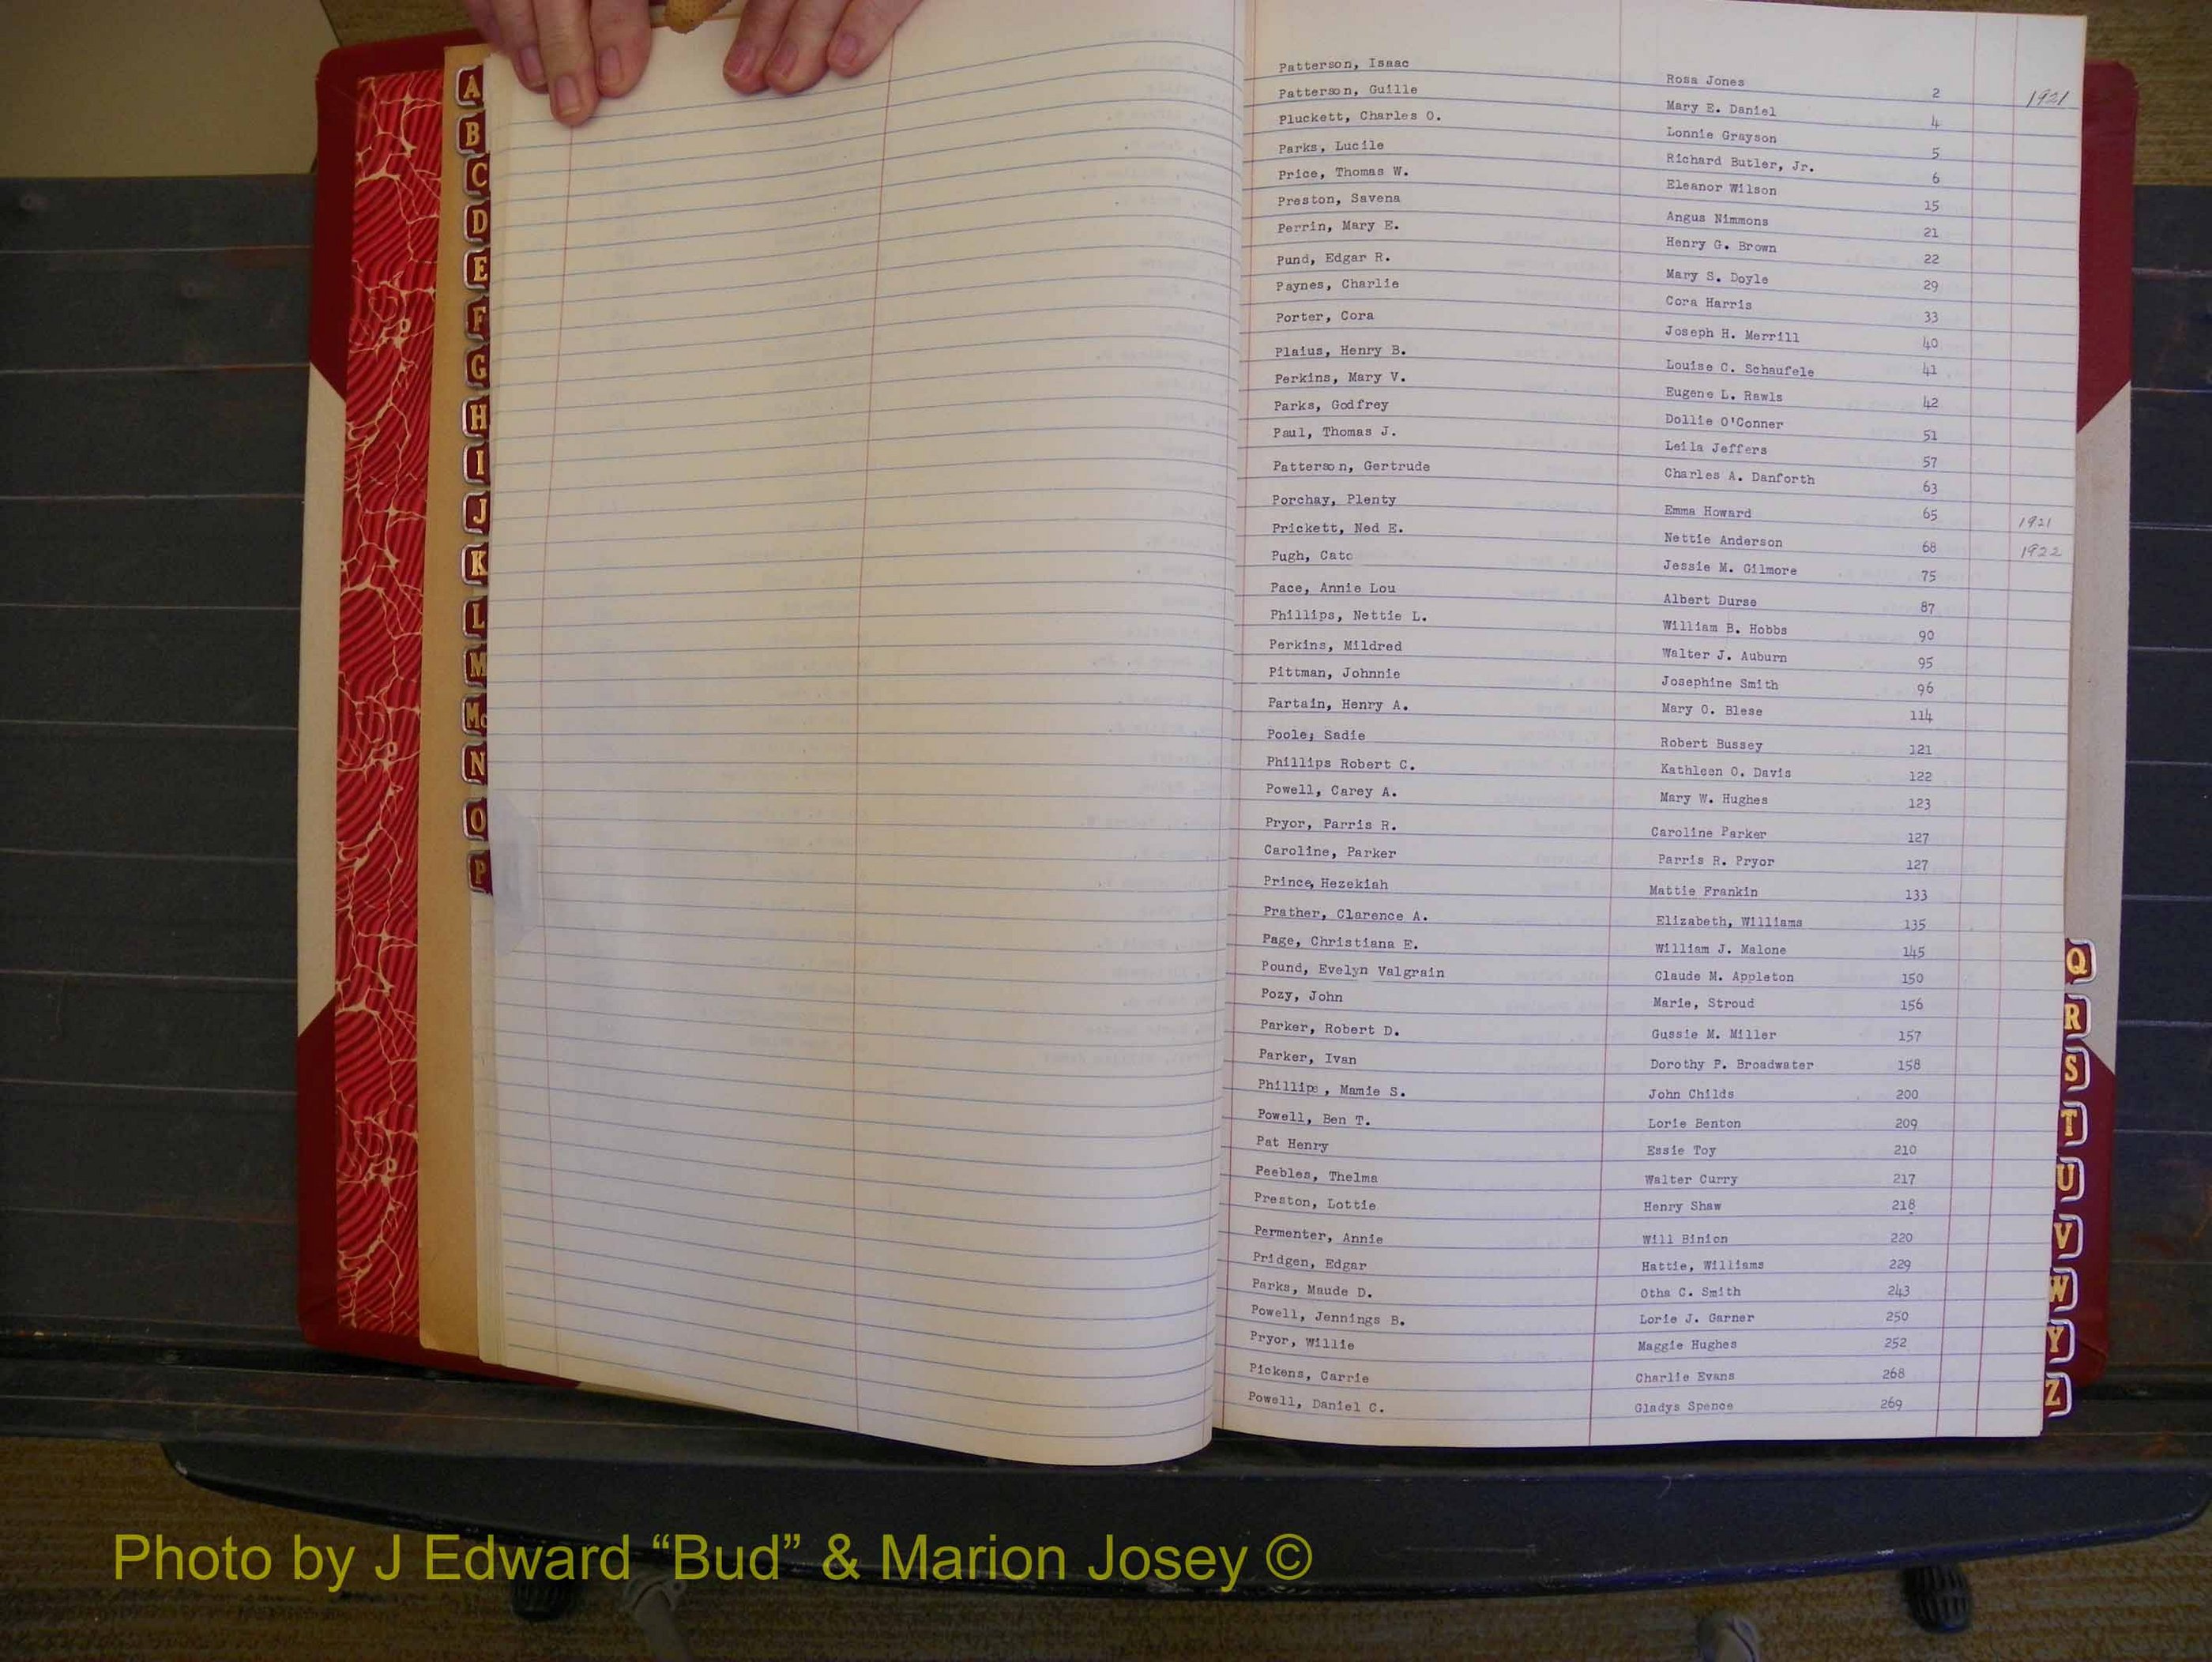 A
B
C
D
E
F
G
H
I
J
K
L
M
Mc
N
O
P
Patterson, Isaac Rosa Jones 2 1921
Patterson, Guille Mary E. Daniel 4
Pluckett, Charles O. Lonnie Grayson 5
Parks, Lucile Richard Butler, Jr. 6
Price, Thomas W. Eleanor Wilson 15
Preston, Savena Angus Nimmons 21
Perrin, Mary E. Henry G. Brown 22
Pund, Edgar R. Mary S. Doyle 29
Paynes, Charlie Cora Harris 33
Porter, Cora Joseph H. Merrill 40
Plaius, Henry B. Louise C. Schaufele 41
Perkins, Mary V. Eugene L. Rawls 42
Parks, Godfrey Dollie O'Conner 51
Paul, Thomas J. Leila Jeffers 57
Patterson, Gertrude Charles A. Danforth 63
Porchay, Plenty Emma Howard 65 1921
Prickett, Ned E. Nettie Anderson 68 1922
Pugh, Cato Jessie M. Gilmore 75
Pace, Annie Lou Albert Durse 87
Phillips, Nettie L. William B. Hobbs 90
Perkins, Mildred Walter J. Auburn 95
Pittman, Johnnie Josephine Smith 96
Partain, Henry A. Mary O. Blese 114
Poole; Sadie Robert Bussey 121
Phillips Robert C. Kathleen O. Davis 122
Powell, Carey A. Mary W. Hughes 123
Pryor, Parris R. Caroline Parker 127
Caroline, Parker Parris R. Pryor 127
Prince, Hezekiah Mattie Frankin 133
Prather, Clarence A. Elizabeth, Williams 135
Page, Christiana E. William J. Malone 145
Pound, Evelyn Valgrain Claude M. Appleton 150
Pozy, John Marie, Stroud 156
Parker, Robert D. Gussie M. Miller 157
Parker, Ivan Dorothy P. Broadwater 158
Phillips, Mamie S. John Childs 200
Powell, Ben T. Lorie Benton 209
Pat Henry Essie Toy 210
Peebles, Thelma Walter Curry 217
Preston, Lottie Henry Shaw 218
Permenter, Annie Will Binion 220
Pridgen, Edgar Hattie, Williams 229
Parks, Maude D. Otha C. Smith 243
Powell, Jennings B. Lorie J. Garner 250
Pryor, Willie Maggie Hughes 252
Pickens, Carrie Charlie Evans 268
Powell, Daniel C. Gladys Spence 269
Q
R
S
T
U
V
W
Y
Z
Photo by J Edward “Bud” & Marion Josey ©